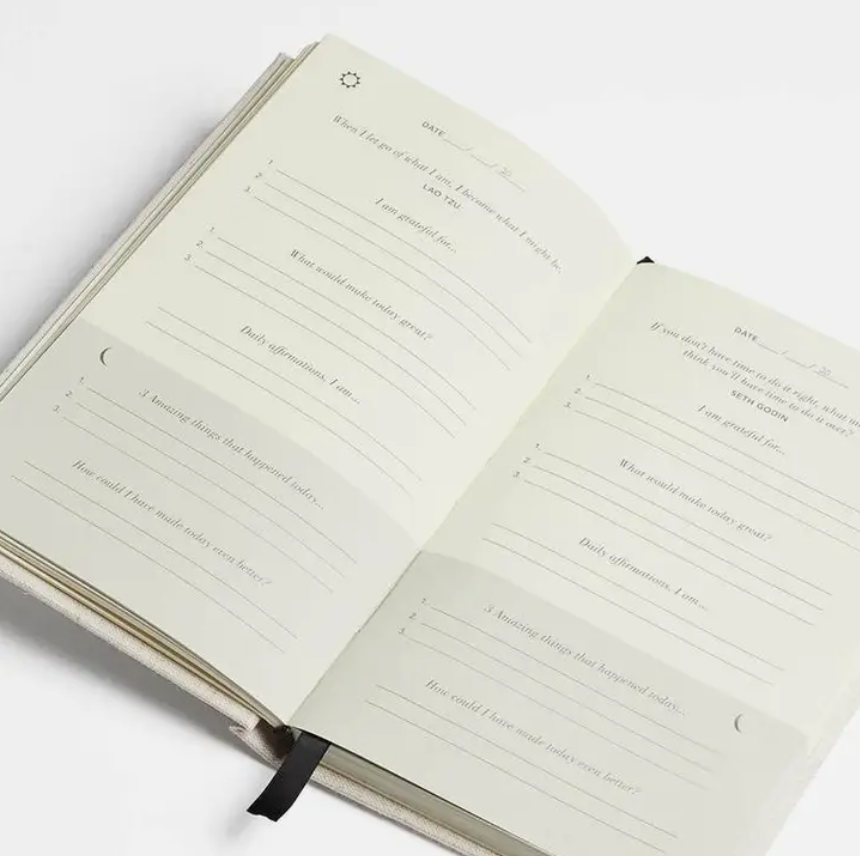 DATE ___/___/ 20___
When I let go of what I am, I become what I might be.
LAO TZU
I am grateful for...
1.
2.
3.
What would make today great?
1.
2.
3.
Daily affirmations. I am...
3 Amazing things that happened today...
1.
2.
3.
How could I have made today even better?
DATE ___/___/ 20___
If you don't have time to do it right, what
think you'll have time to do it over?
SETH GODIN
I am grateful for...
1.
2.
3.
What would make today great?
1.
2.
3.
Daily affirmations. I am...
3 Amazing things that happened today...
1.
2.
3.
How could I have made today even better?